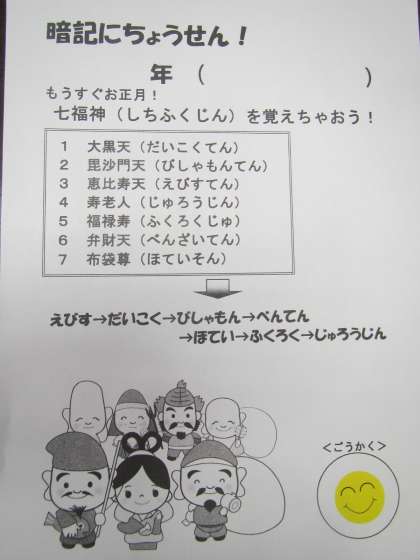 暗記にちょうせん！
年（　　　　　）
もうすぐお正月！
七福神（しちふくじん）を覚えちゃおう！
1 大黒天（だいこくてん）
2 毘沙門天（びしゃもんてん）
3 恵比寿天（えびすてん）
4 寿老人（じゅろうじん）
5 福禄寿（ふくろくじゅ）
6 弁財天（べんざいてん）
7 布袋尊（ほていそん）
えびす→だいこく→びしゃもん→べんてん
→ほてい→ふくろく→じゅろうじん
＜ごうかく＞